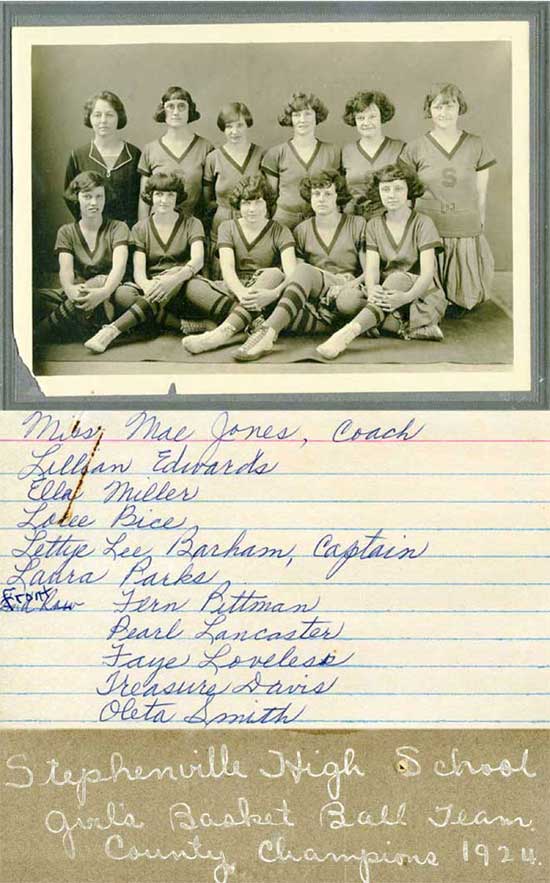 S
Miss Mae Jones, Coach
Lillian Edwards
Ella Miller
Locee Bice
Lettye Lee Barham, Captain
Laura Parks
Front
2nd Row Fern Pittman
Pearl Lancaster
Faye Loveless
Treasure Davis
Oleta Smith
Stephenville High School
Girl's Basket Ball Team
County Champions 1924.